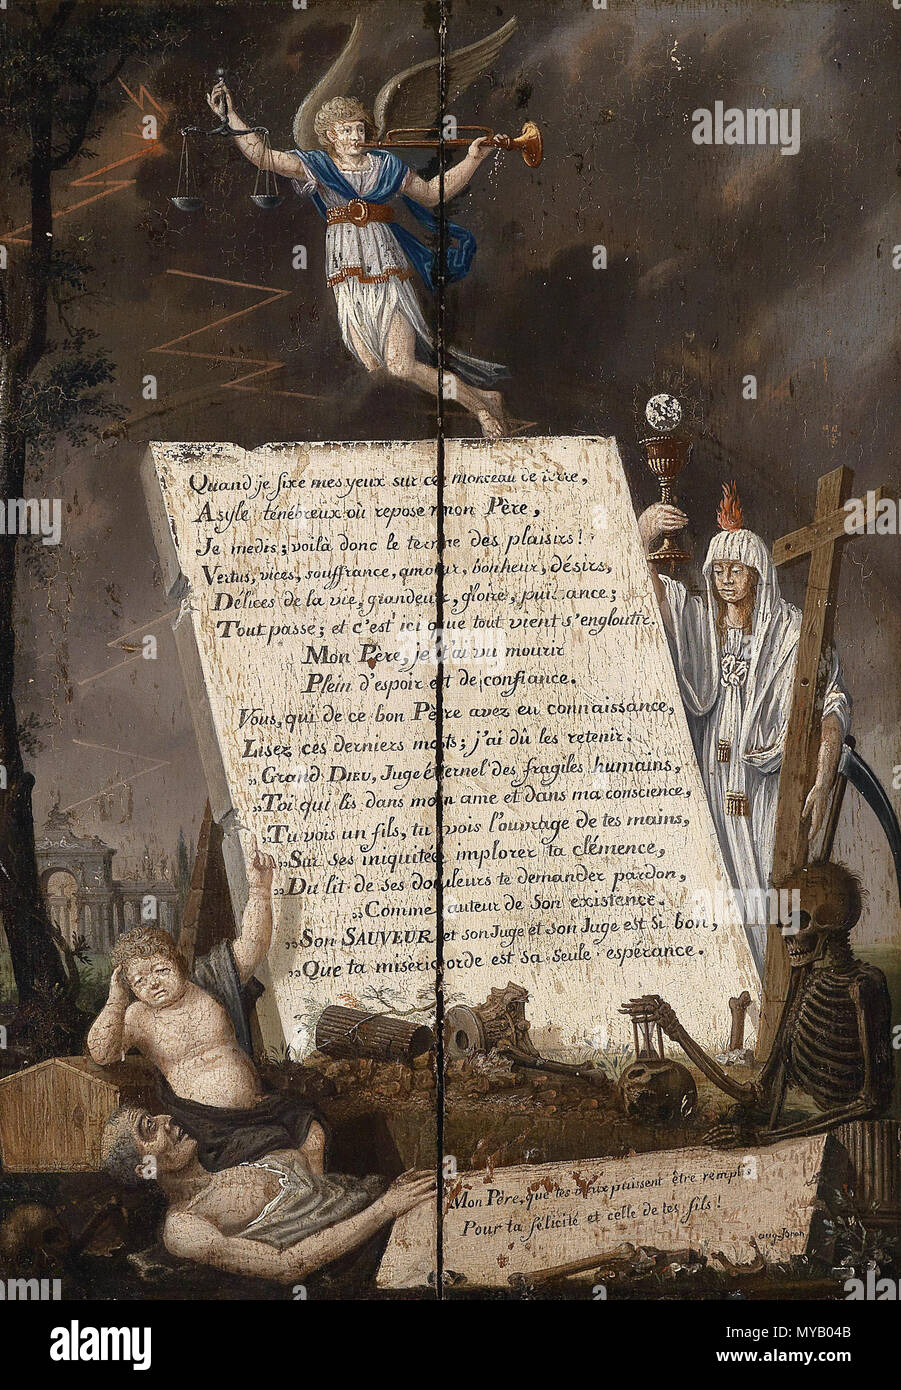 Quand je fixe mes yeux sur ce morceau de terre,
Asyle ténébreux où repose mon Père,
Je me dis; voilà donc le terme des plaisirs!
Vertus, vices, souffrance, amour, bonheur, désirs,
Délices de la vie, grandeur, gloire, puissance;
Tout passe; et c'est ici que tout vient s'engloutir.
Mon Père, je t'ai vu mourir
Plein d'espoir et de confiance.
Vous, qui de ce bon Père avez eu connaissance,
Lisez ces derniers mots; j'ai dû les retenir.
„Grand DIEU, Juge éternel des fragiles humains,
„Toi qui lis dans mon ame et dans ma conscience,
„Tu vois un fils, tu vois l'ouvrage de tes mains,
„Sur ses iniquités implorer ta clémence,
„Du lit de ses douleurs te demander pardon,
„Comme auteur de son existence.
„Son SAUVEUR et son Juge et son Juge est si bon,
„Que ta miséricorde est sa seule espérance.
Mon Père, que tes vœux puissent être remplis
Pour ta félicité et celle de tes fils!
alamy
Image ID: MYB04B
www.alamy.com